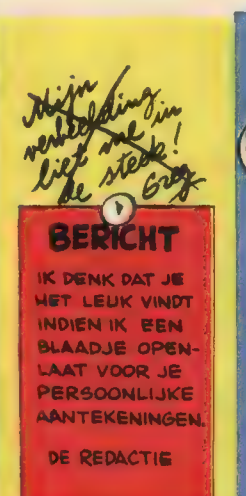 Mijn
verbeelding
liet me in
de steek!
Greg
BERICHT
IK DENK DAT JE
HET LEUK VINDT
INDIEN IK EEN
BLAADJE OPEN-
LAAT VOOR JE
PERSOONLIJKE
AANTEKENINGEN.
DE REDACTIE